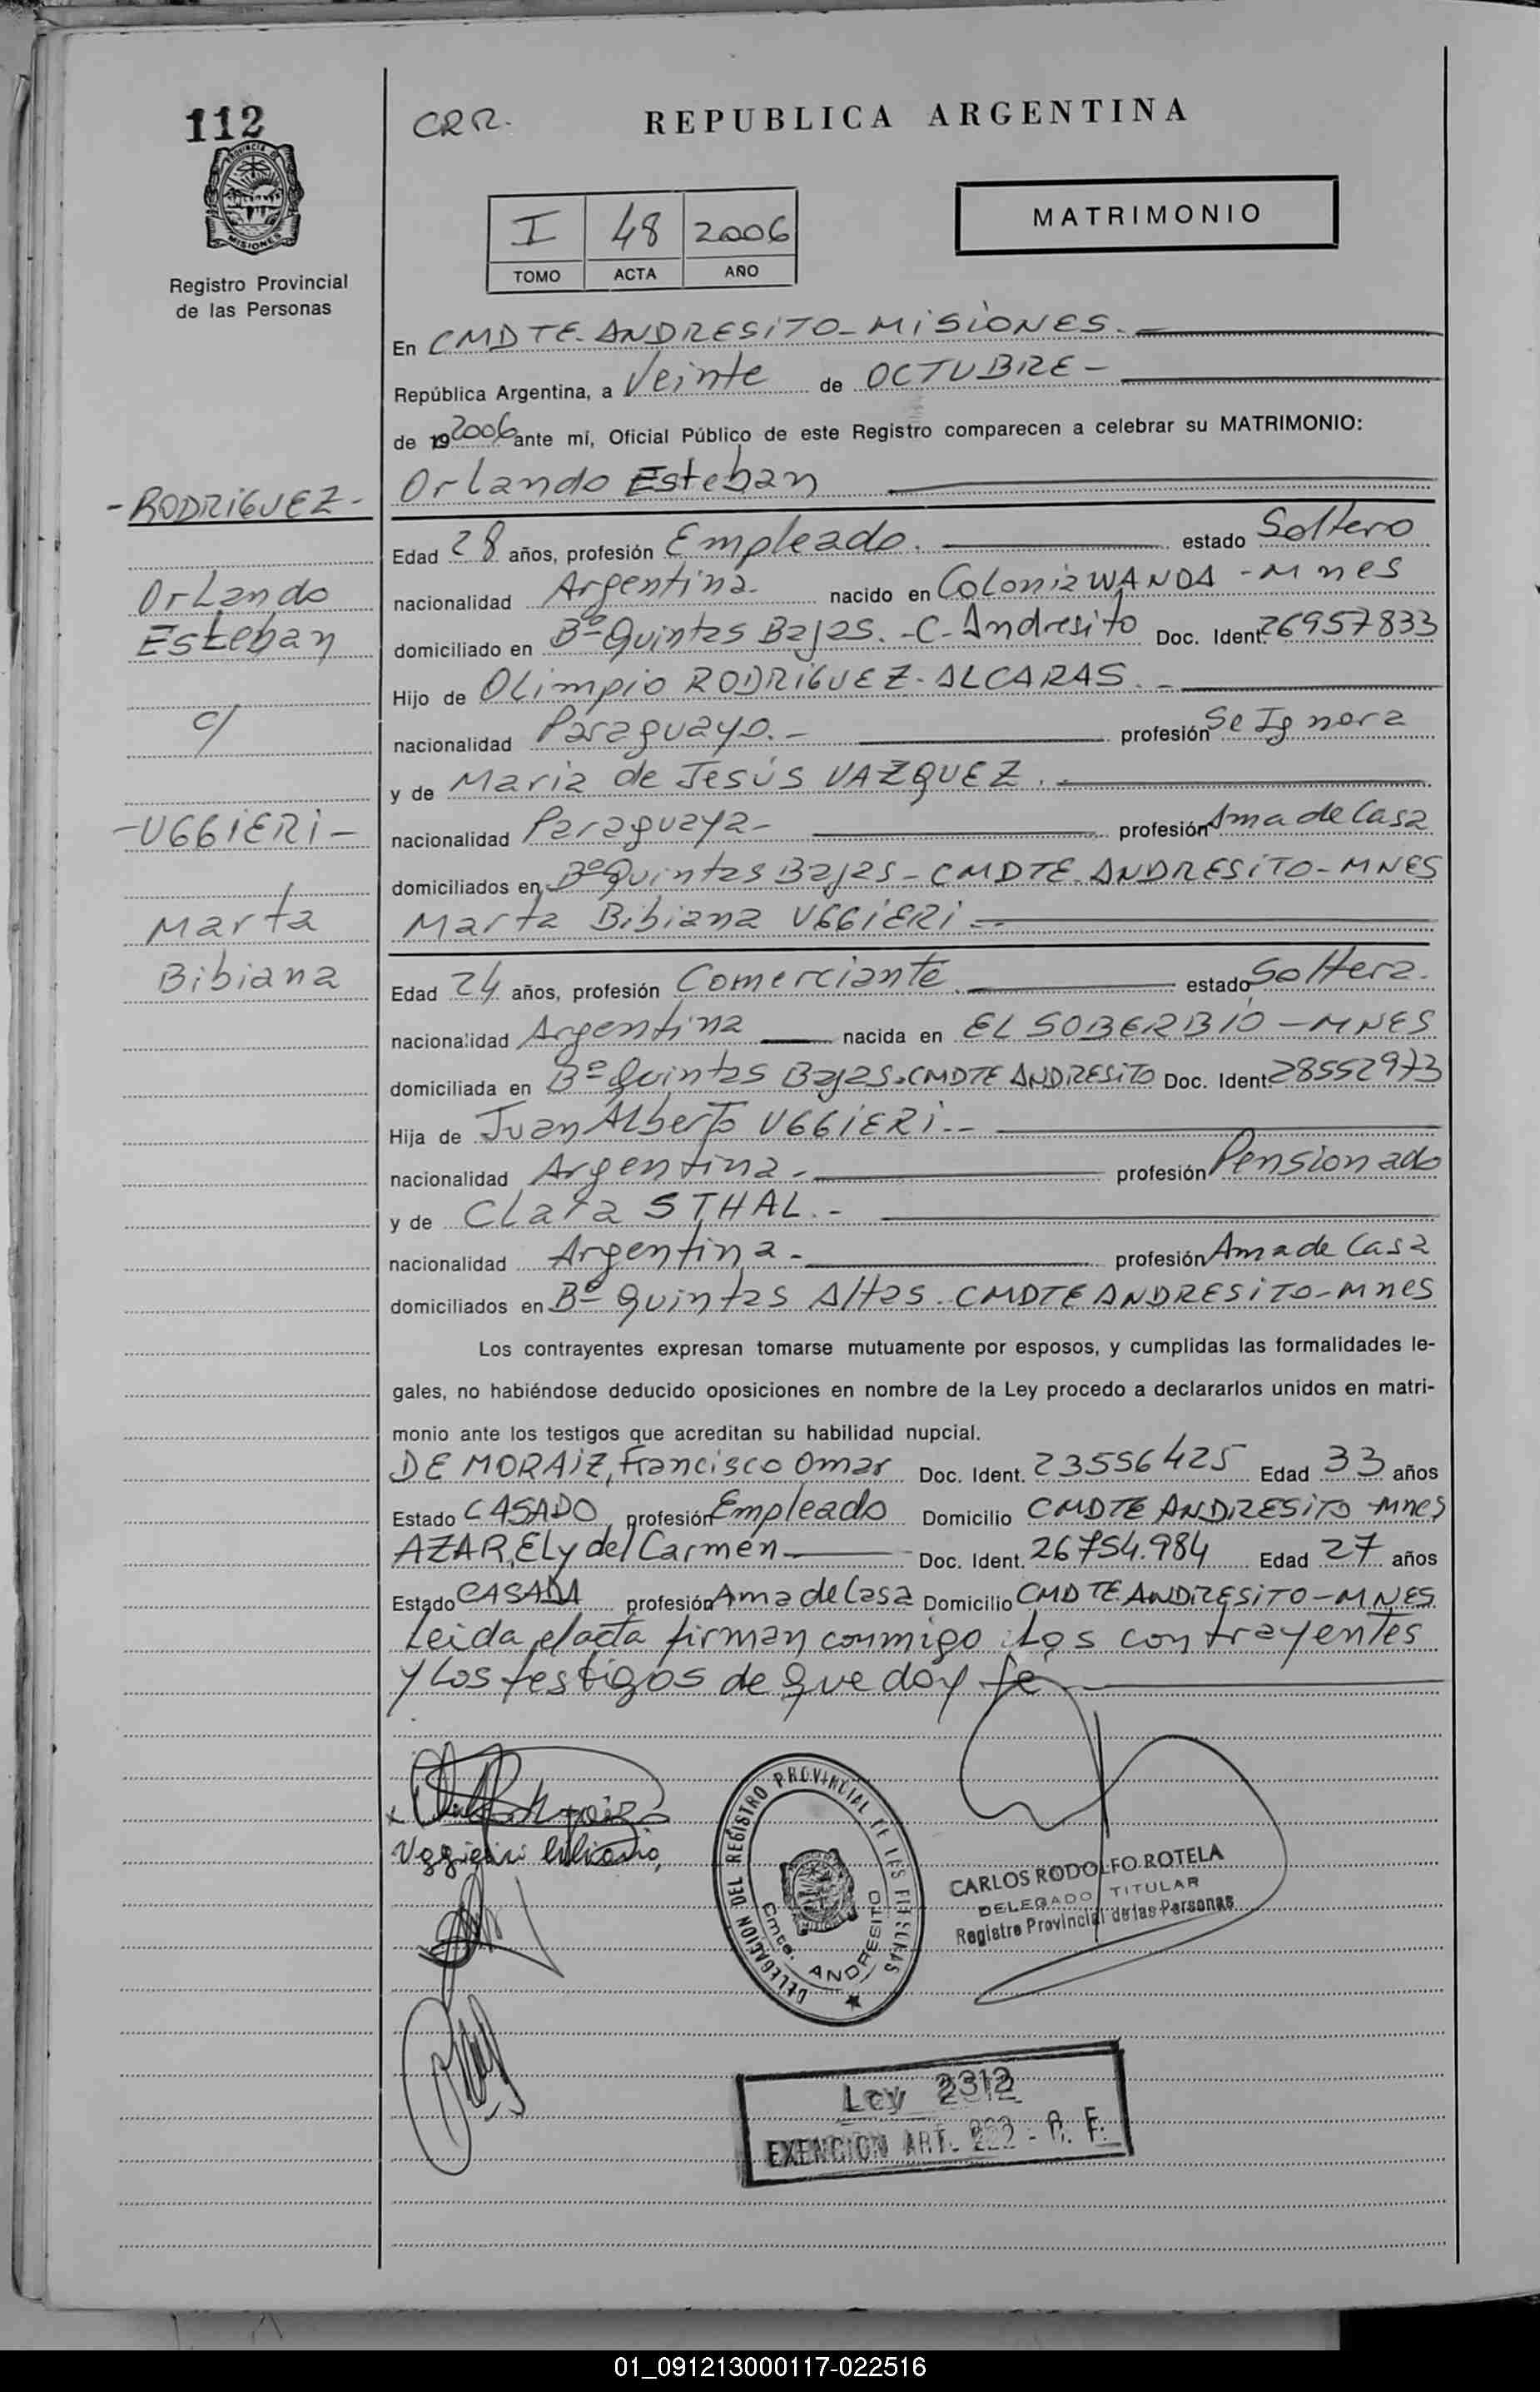 112
CRR.
REPUBLICA ARGENTINA
PROVINCIA DE
MISIONES
Registro Provincial
de las Personas
I 48 2006
TOMO ACTA AÑO
MATRIMONIO
En CMDTE. ANDRESiTO - MiSiONES.
República Argentina, a Veinte de OCTUBRE -
de 19 2006 ante mí, Oficial Público de este Registro comparecen a celebrar su MATRIMONIO:
- RODRiGUEZ - Orlando Esteban
Edad 28 años, profesión Empleado. estado Soltero
Orlando nacionalidad Argentina. nacido en Colonia WANDA - Mnes
Esteban domiciliado en Bº Quintas Bajas. - C. Andresito Doc. Ident. 26957833
Hijo de Olimpio RODRiGUEZ - ALCARAS. -
c/ nacionalidad Paraguayo. - profesión Se Ignora
y de Maria de Jesús VAZQUEZ. -
- UGGiERi - nacionalidad Paraguaya - profesión Ama de Casa
domiciliados en Bº Quintas Bajas - CMDTE. ANDRESiTO - MNES
Marta Marta Bibiana UGGiERi = -
Bibiana Edad 24 años, profesión Comerciante. estado Soltera.
nacionalidad Argentina nacida en EL SOBERBIO - MNES
domiciliada en Bº Quintas Bajas. CMDTE ANDRESiTO Doc. Ident. 28552973
Hija de Juan Alberto UGGiERi - -
nacionalidad Argentina - profesión Pensionado
y de Clara STHAL. -
nacionalidad Argentina - profesión Ama de Casa
domiciliados en Bº Quintas Altas. CMDTE ANDRESiTO - Mnes
Los contrayentes expresan tomarse mutuamente por esposos, y cumplidas las formalidades le-
gales, no habiéndose deducido oposiciones en nombre de la Ley procedo a declararlos unidos en matri-
monio ante los testigos que acreditan su habilidad nupcial.
DE MORAiZ, Francisco Omar Doc. Ident. 23556425 Edad 33 años
Estado CASADO profesión Empleado Domicilio CMDTE ANDRESiTO - Mnes
AZAR, Ely del Carmen Doc. Ident. 26754.984 Edad 27 años
Estado CASADA profesión Ama de Casa Domicilio CMDTE. ANDRESiTO - MNES
Leida el acta firman conmigo Los contrayentes
y Los testigos de que doy fe
Uggieri Bibiana
DELEGACION DEL REGISTRO PROVINCIAL DE LAS PERSONAS
Cmte. ANDRESITO
CARLOS RODOLFO ROTELA
DELEGADO TITULAR
Registro Provincial de las Personas
Ley 2312
EXENCION ART. 222 - C. F.
01_091213000117-022516